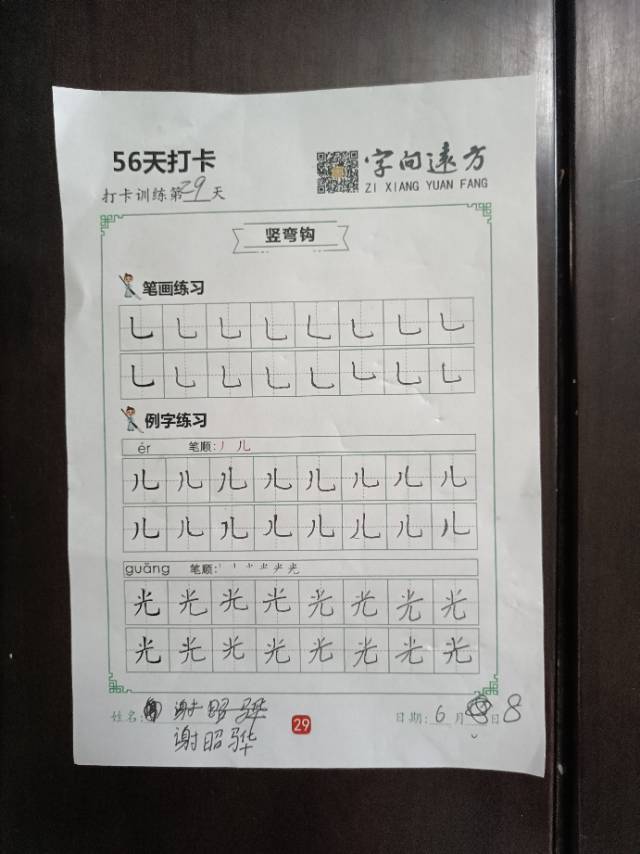 56天打卡
字向远方
打卡训练第29天
ZI XIANG YUAN FANG
竖弯钩
笔画练习
乚乚乚乚乚乚乚乚
乚乚乚乚乚乚乚乚
例字练习
ér 笔顺: 丿 儿
儿儿儿儿儿儿儿儿
儿儿儿儿儿儿儿儿
guāng 笔顺:
光光光光光光光光
光光光光光光光光
姓名: 谢昭骅
日期: 6月8日
谢昭骅
29